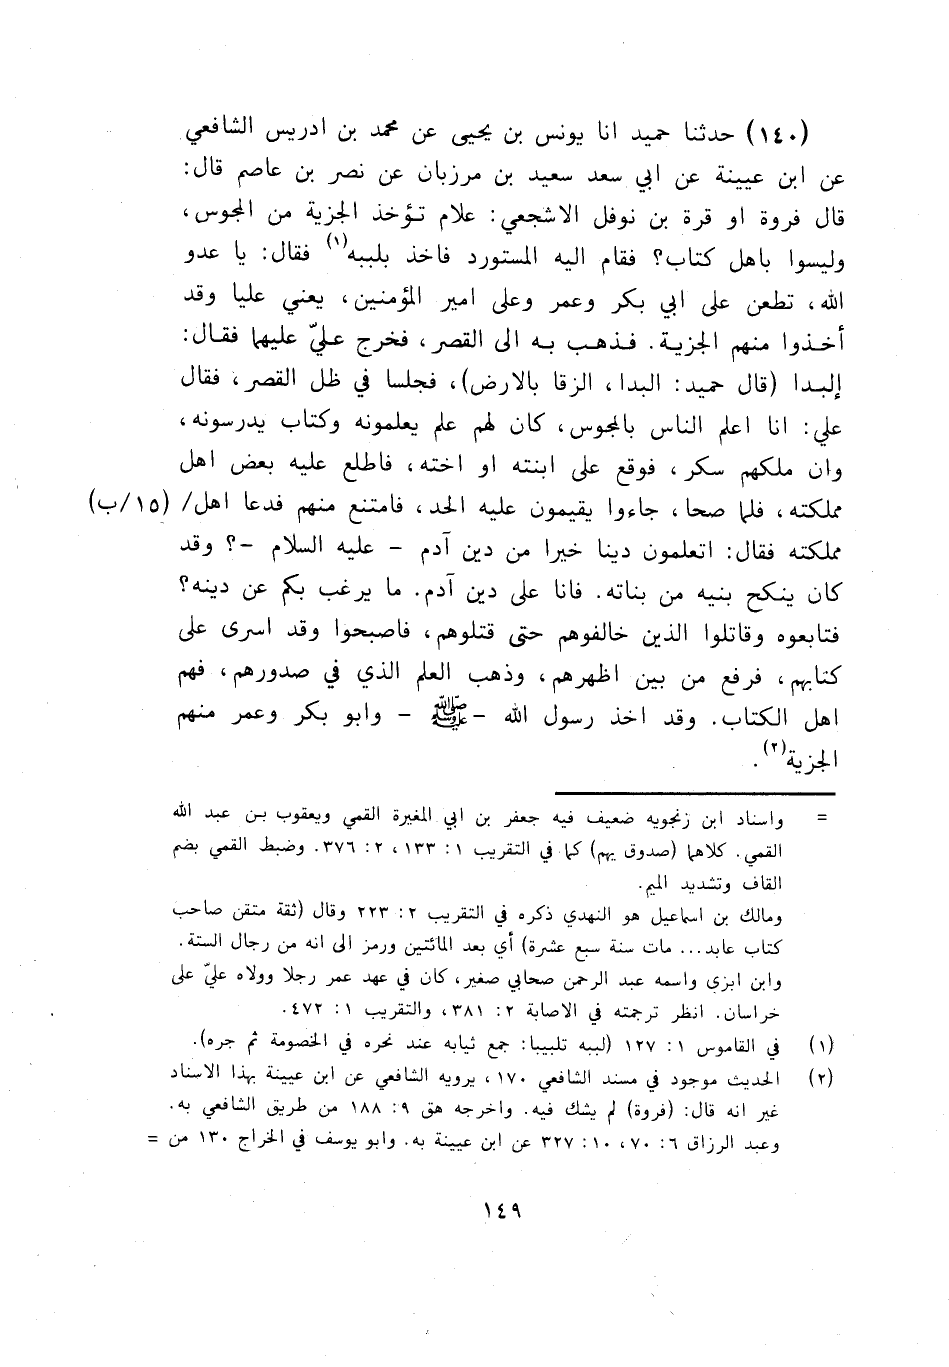 (١٤٠) حدثنا حميد انا يونس بن يحيى عن محمد بن ادريس الشافعي
عن ابن عيينة عن ابي سعد سعيد بن مرزبان عن نصر بن عاصم قال:
قال فروة او قرة بن نوفل الاشجعي: علام تؤخذ الجزية من المجوس،
وليسوا باهل كتاب؟ فقام اليه المستورد فاخذ بلببه(١) فقال: يا عدو
الله، تطعن على ابي بكر وعمر وعلى امير المؤمنين، يعني عليا وقد
أخذوا منهم الجزية. فذهب به الى القصر، فخرج عليّ عليهما فقال:
إلبدا (قال حميد: البدا، الزقا بالارض)، فجلسا في ظل القصر، فقال
علي: انا اعلم الناس بالمجوس، كان لهم علم يعلمونه وكتاب يدرسونه،
وان ملكهم سكر، فوقع على ابنته او اخته، فاطلع عليه بعض اهل
مملكته، فلما صحا، جاءوا يقيمون عليه الحد، فامتنع منهم فدعا اهل/ (١٥/ب)
مملكته فقال: اتعلمون دينا خيرا من دين آدم - عليه السلام -؟ وقد
كان ينكح بنيه من بناته. فانا على دين آدم. ما يرغب بكم عن دينه؟
فتابعوه وقاتلوا الذين خالفوهم حتى قتلوهم، فاصبحوا وقد اسرى على
كتابهم، فرفع من بين اظهرهم، وذهب العلم الذي في صدورهم، فهم
اهل الكتاب. وقد اخذ رسول الله - ﷺ - وابو بكر وعمر منهم
الجزية(٢).
= واسناد ابن زنجويه ضعيف فيه جعفر بن ابي المغيرة القمي ويعقوب بن عبد الله
القمي. كلاهما (صدوق يهم) كما في التقريب ١: ١٣٣، ٢: ٣٧٦. وضبط القمي بضم
القاف وتشديد الميم.
ومالك بن اسماعيل هو النهدي ذكره في التقريب ٢: ٢٢٣ وقال (ثقة متقن صاحب
كتاب عابد... مات سنة سبع عشرة) أي بعد المائتين ورمز الى انه من رجال الستة.
وابن ابزي واسمه عبد الرحمن صحابي صغير، كان في عهد عمر رجلا وولاه عليّ على
خراسان. انظر ترجمته في الاصابة ٢: ٣٨١، والتقريب ١: ٤٧٢.
(١) في القاموس ١: ١٢٧ (لببه تلبيبا: جمع ثيابه عند نحره في الخصومة ثم جره).
(٢) الحديث موجود في مسند الشافعي ١٧٠، يرويه الشافعي عن ابن عيينة بهذا الاسناد
غير انه قال: (فروة) لم يشك فيه. واخرجه هق ٩: ١٨٨ من طريق الشافعي به.
وعبد الرزاق ٦: ٧٠، ١٠: ٣٢٧ عن ابن عيينة به. وابو يوسف في الخراج ١٣٠ من =
١٤٩